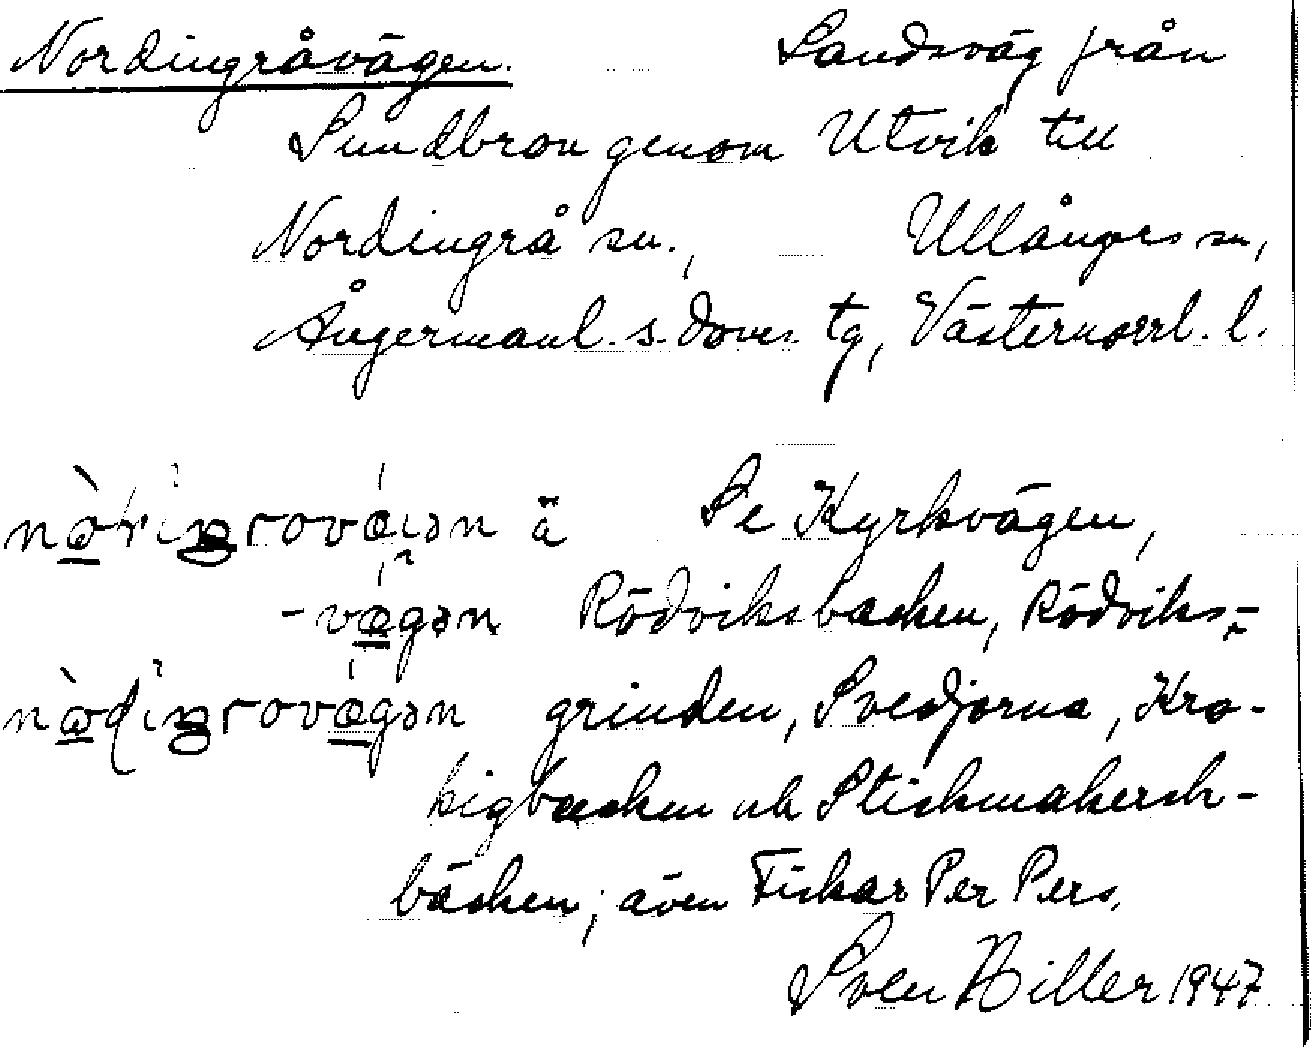 Nordingråvägen. Landsväg från
Sundbron genom Utvik till
Nordingrå sn., Ullångers sn,
Ångermanl. s. doms. tg, Västernorrl. l.
nòringrováiən ä Se Kyrkvägen,
-vǽgən Rödviksbacken, Rödviks-
nòdingrovǽgən grinden, Svedjorna, Kro-
kigbacken och Stickmakersk-
bäcken; även Fiskar Per Pers.
Sven Hiller 1947